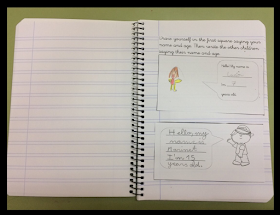 Draw yourself in the first square saying your
name and age. Then make the other children
saying their name and age.
Hello, my name is
years old.
Hello, my
name is
I'm 15
years old.